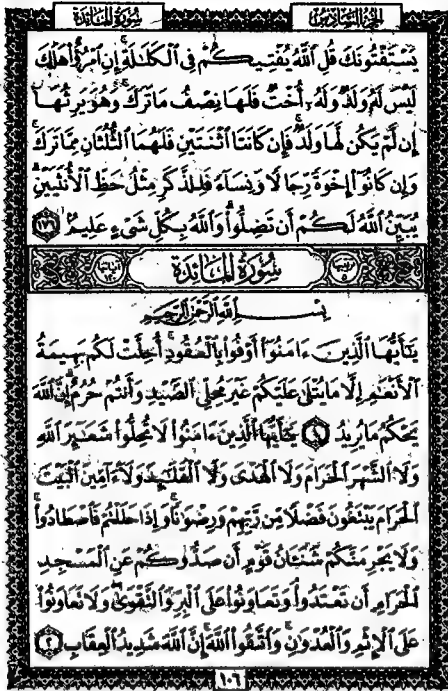 سُورَةُ المَائِدَةِ
الجزء السادس
يَسْتَفْتُونَكَ قُلِ ٱللَّهُ يُفْتِيكُمْ فِي ٱلْكَلَٰلَةِ ۚ إِنِ ٱمْرُؤٌا۟ هَلَكَ
لَيْسَ لَهُۥ وَلَدٌ وَلَهُۥٓ أُخْتٌ فَلَهَا نِصْفُ مَا تَرَكَ ۚ وَهُوَ يَرِثُهَآ
إِن لَّمْ يَكُن لَّهَا وَلَدٌ ۚ فَإِن كَانَتَا ٱثْنَتَيْنِ فَلَهُمَا ٱلثُّلُثَانِ مِمَّا تَرَكَ ۚ
وَإِن كَانُوٓا۟ إِخْوَةً رِّجَالًا وَنِسَآءً فَلِلذَّكَرِ مِثْلُ حَظِّ ٱلْأُنثَيَيْنِ ۗ
يُبَيِّنُ ٱللَّهُ لَكُمْ أَن تَضِلُّوا۟ ۗ وَٱللَّهُ بِكُلِّ شَىْءٍ عَلِيمٌۢ ١٧٦
سُورَةُ المَائِدَةِ
بِسْمِ ٱللَّهِ ٱلرَّحْمَٰنِ ٱلرَّحِيمِ
يَٰٓأَيُّهَا ٱلَّذِينَ ءَامَنُوٓا۟ أَوْفُوا۟ بِٱلْعُقُودِ ۚ أُحِلَّتْ لَكُم بَهِيمَةُ
ٱلْأَنْعَٰمِ إِلَّا مَا يُتْلَىٰ عَلَيْكُمْ غَيْرَ مُحِلِّى ٱلصَّيْدِ وَأَنتُمْ حُرُمٌ ۗ إِنَّ ٱللَّهَ
يَحْكُمُ مَا يُرِيدُ ١ يَٰٓأَيُّهَا ٱلَّذِينَ ءَامَنُوا۟ لَا تُحِلُّوا۟ شَعَٰٓئِرَ ٱللَّهِ
وَلَا ٱلشَّهْرَ ٱلْحَرَامَ وَلَا ٱلْهَدْىَ وَلَا ٱلْقَلَٰٓئِدَ وَلَآ ءَآمِّينَ ٱلْبَيْتَ
ٱلْحَرَامَ يَبْتَغُونَ فَضْلًا مِّن رَّبِّهِمْ وَرِضْوَٰنًا ۚ وَإِذَا حَلَلْتُمْ فَٱصْطَادُوا۟ ۚ
وَلَا يَجْرِمَنَّكُمْ شَنَـَٔانُ قَوْمٍ أَن صَدُّوكُمْ عَنِ ٱلْمَسْجِدِ
ٱلْحَرَامِ أَن تَعْتَدُوا۟ ۘ وَتَعَاوَنُوا۟ عَلَى ٱلْبِرِّ وَٱلتَّقْوَىٰ ۖ وَلَا تَعَاوَنُوا۟
عَلَى ٱلْإِثْمِ وَٱلْعُدْوَٰنِ ۚ وَٱتَّقُوا۟ ٱللَّهَ ۖ إِنَّ ٱللَّهَ شَدِيدُ ٱلْعِقَابِ ٢
١٠٦